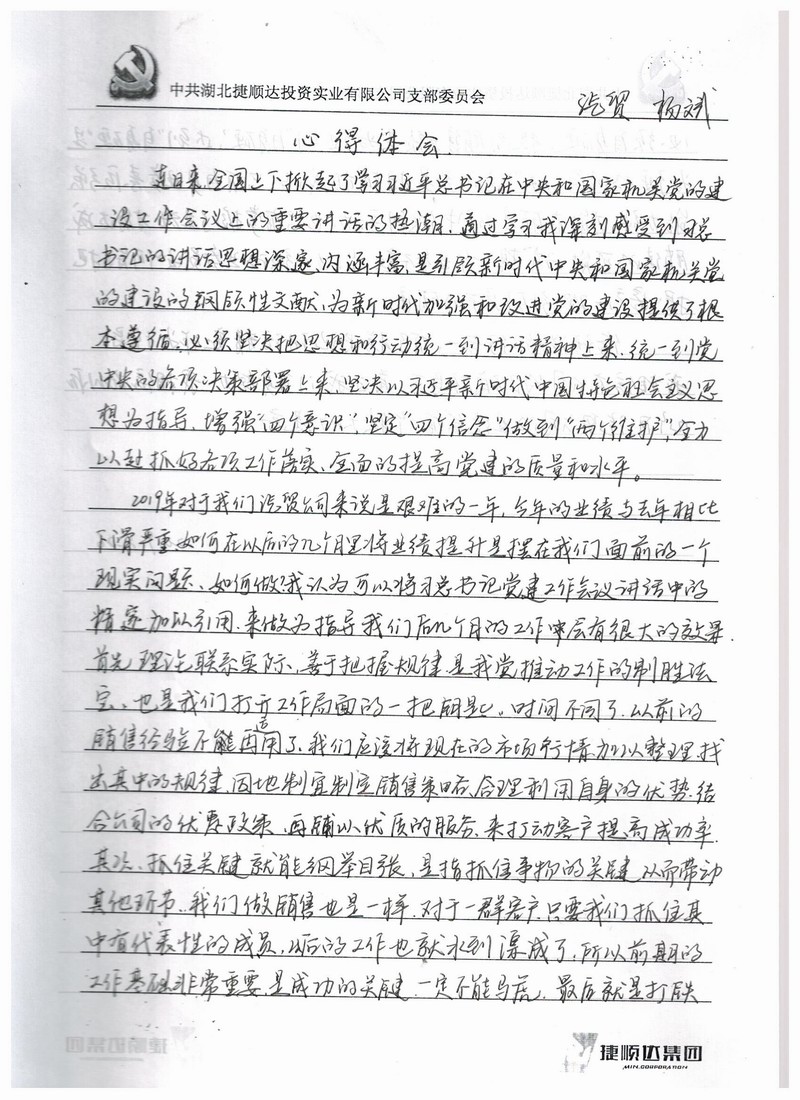 中共湖北捷顺达投资实业有限公司支部委员会
汽贸 杨斌
心得体会
连日来,全国上下掀起了学习习近平总书记在中央和国家机关党的建
设工作会议上的重要讲话的热潮,通过学习我深刻感受到习总
书记的讲话思想深邃、内涵丰富,是引领新时代中央和国家机关党
的建设的纲领性文献,为新时代加强和改进党的建设提供了根
本遵循。必须坚决把思想和行动统一到讲话精神上来,统一到党
中央的各项决策部署上来,坚决以习近平新时代中国特色社会主义思
想为指导,增强“四个意识”,坚定“四个信念”做到“两个维护”,全力
以赴抓好各项工作落实、全面的提高党建的质量和水平。
2019年对于我们汽贸公司来说是艰难的一年,今年的业绩与去年相比
下滑严重,如何在以后的几个月里将业绩提升是摆在我们面前的一个
现实问题、如何做?我认为可以将习总书记党建工作会议讲话中的
精邃加以引用,来做为指导我们后几个月的工作中会有很大的效果。
首先,理论联系实际、善于把握规律,是我党推动工作的制胜法
宝、也是我们打开工作局面的一把钥匙。时间不同了,以前的
销售经验不能再适用了、我们应该将现在的市场行情加以整理,找
出其中的规律,因地制宜制定销售策略、合理利用自身的优势,结
合公司的优惠政策、再辅以优质的服务、来打动客户提高成功率。
其次、抓住关键就能纲举目张,是指抓住事物的关键从而带动
其他环节、我们做销售也是一样,对于一群客户只要我们抓住其
中有代表性的成员,以后的工作也就水到渠成了,所以前期的
工作基础非常重要,是成功的关键,一定不能马虎,最后就是打铁
捷顺达集团
MIN.CORPORATION